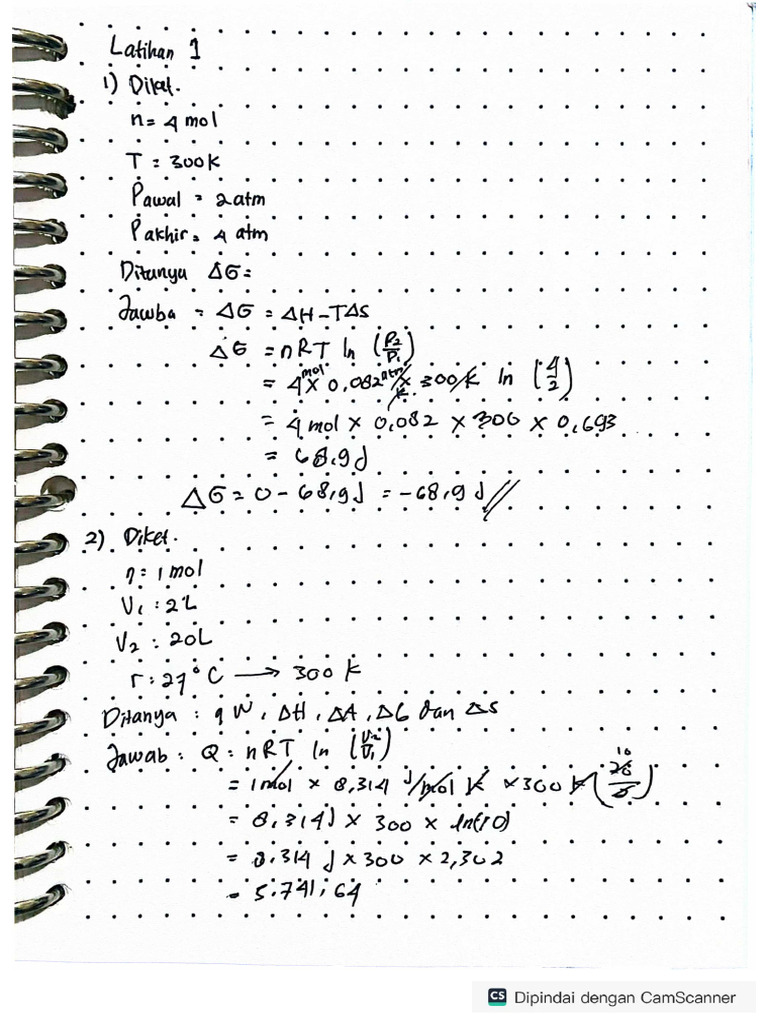 Latihan 1
1) Diket.
n = 4 mol
T = 300 K
Pawal = 2 atm
Pakhir = 4 atm
Ditanya ΔG =
Jawba = ΔG = ΔH - TΔS
ΔG = nRT ln (P2/P1)
= 4 mol × 0,082 atm/K × 300 K ln (4/2)
= 4 mol × 0,082 × 300 × 0,693
= 68,9 J
ΔG = 0 - 68,9 J = -68,9 J //
2) Diket.
n = 1 mol
V1 : 2 L
V2 : 20 L
T : 27°C → 300 K
Ditanya : q W, ΔH, ΔA, ΔG dan ΔS
Jawab : Q = nRT ln (V2/V1)
= 1 mol × 8,314 J/mol K × 300 K (20/2) 10
= 8,314 J × 300 × ln(10)
= 8.314 J × 300 × 2,302
= 5.741,64
CS Dipindai dengan CamScanner